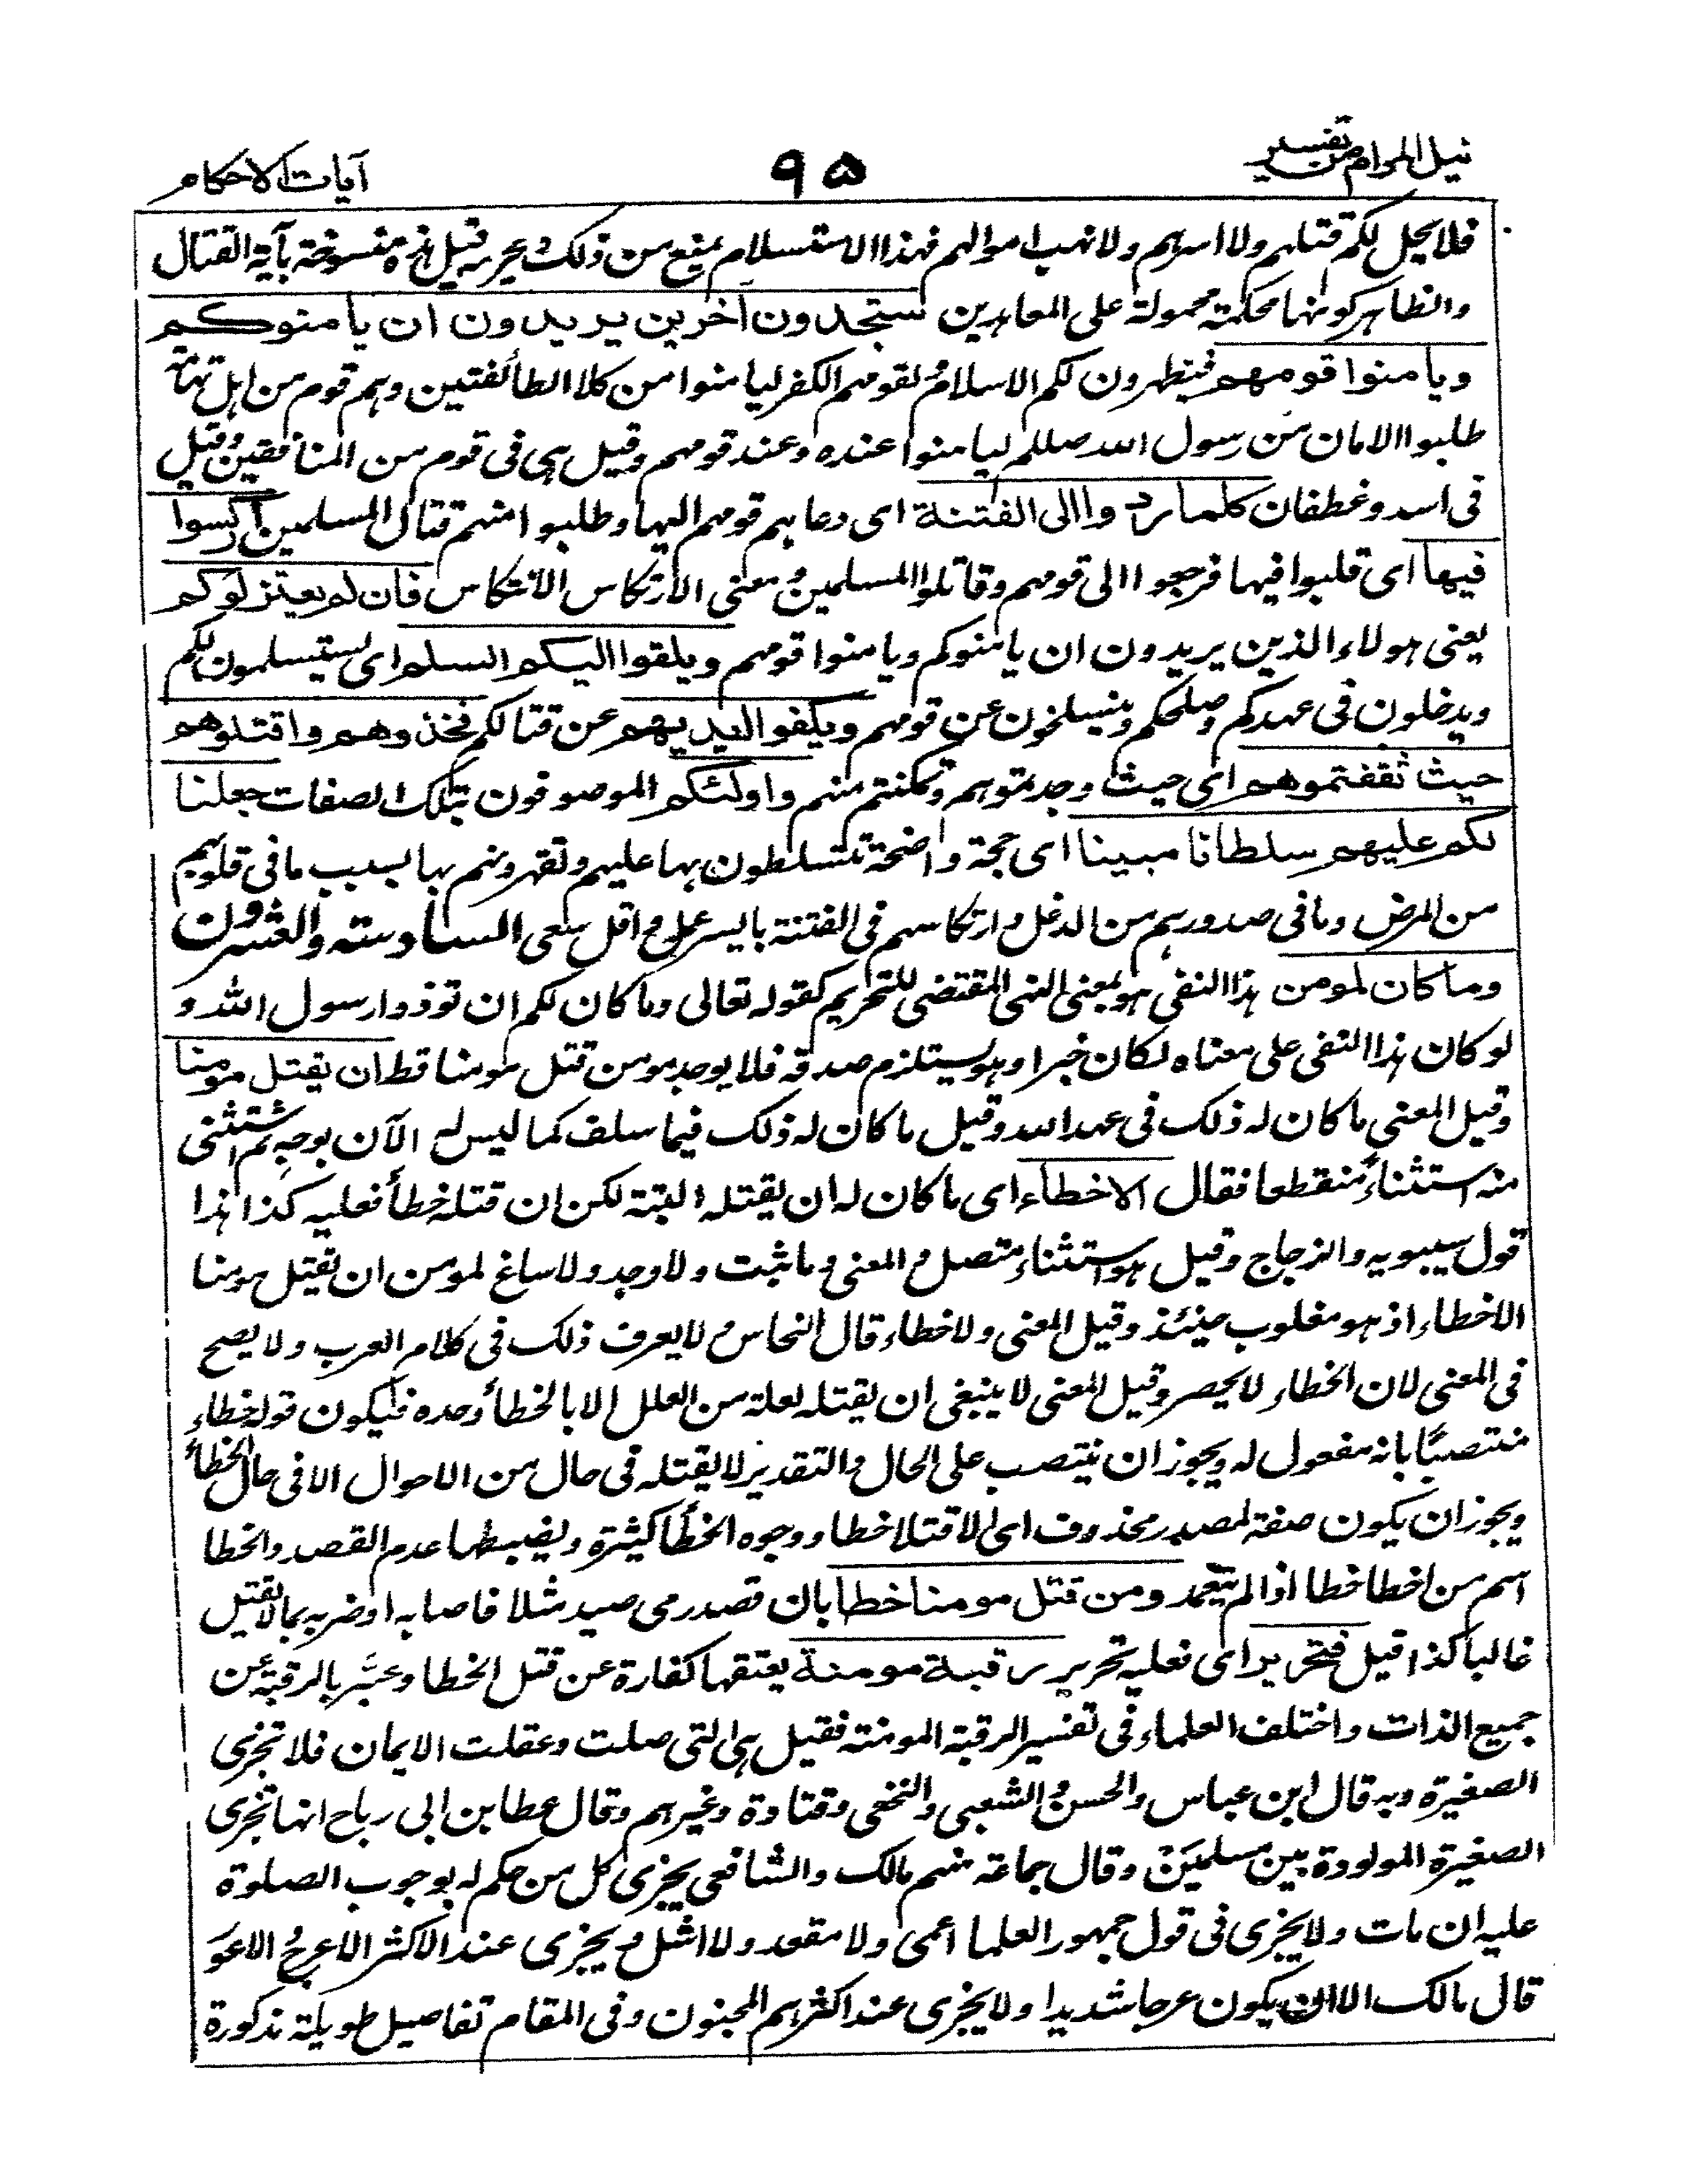 نيل المرام من تفسير
٩٥
آيات الاحكام
فلا يحل لكم قتلهم ولا اسرهم ولا نهب اموالهم فهذا الاستسلام يمنع من ذلك ويحرمه قيل هذه منسوخة بآية القتال
والظاهر كونها محكمة محمولة على المعاهدين ستجدون آخرين يريدون ان يأمنوكم
ويأمنوا قومهم فيظهرون لكم الاسلام ولقومهم الكفر ليأمنوا من كلا الطائفتين وهم قوم من اهل تهامة
طلبوا الامان من رسول الله صللم ليأمنوا عنده وعند قومهم وقيل هي في قوم من المنافقين وقيل
في اسد وغطفان كلما ردوا الى الفتنة اى دعاهم قومهم اليها وطلبوا منهم قتال المسلمين اركسوا
فيها اى قلبوا فيها فرجعوا الى قومهم وقاتلوا المسلمين ومعنى الارتكاس الانتكاس فان لم يعتزلوكم
يعنى هولاء الذين يريدون ان يامنوكم ويامنوا قومهم ويلقوا اليكم السلم اى يستسلمون لكم
ويدخلون في عهدكم وصلحكم وينسلخون عن قومهم ويكفوا ايديهم عن قتالكم فخذوهم واقتلوهم
حيث ثقفتموهم اى حيث وجدتموهم وتمكنتم منهم واولئكم الموصوفون بتلك الصفات جعلنا
لكم عليهم سلطانا مبينا اى حجة واضحة تتسلطون بها عليهم وتقهرونهم بها بسبب ما في قلوبهم
من المرض وما في صدورهم من الدغل وارتكاسهم في الفتنة بايسر عمل واقل سعى السادسة والعشرون
وما كان لمومن هذا النفى هو بمعنى النهى المقتضى للتحريم كقوله تعالى وما كان لكم ان توذوا رسول الله و
لو كان هذا النفى على معناه لكان خبرا وهو يستلزم صدقه فلا يوجد مومن قتل مومنا قط ان يقتل مومنا
وقيل المعنى ما كان له ذلك في عهد الله وقيل ما كان له ذلك فيما سلف كما ليس له الآن بوجه ثم استثنى
منه استثناءً منقطعا فقال الا خطاء اى ما كان له ان يقتله البتة لكن ان قتله خطأ فعليه كذا هذا
قول سيبويه والزجاج وقيل هو استثناء متصل والمعنى وما ثبت ولا وجد ولا ساغ لمومن ان يقتل مومنا
الا خطاء اذ هو مغلوب حينئذ وقيل المعنى ولا خطاء قال النحاس ولا يعرف ذلك في كلام العرب ولا يصح
في المعنى لان الخطاء لا يحصر وقيل المعنى لا ينبغى ان يقتله لعلة من العلل الا بالخطأ وحده فيكون قوله خطاء
منتصبًا بانه مفعول له ويجوز ان ينتصب على الحال والتقدير لا يقتله في حال من الاحوال الا في حال الخطأ
ويجوز ان يكون صفة لمصدر محذوف اى الا قتلا خطا ووجوه الخطأ كثيرة ويضبطها عدم القصد والخطا
اسم من اخطا خطا اذا لم يتعمد ومن قتل مومنا خطا بان قصد رمى صيد مثلا فاصابه او ضربه بما لا يقتل
غالبا كذا قيل فتحرير اى فعليه تحرير رقبة مومنة يعتقها كفارة عن قتل الخطا وعبَّر بالرقبة عن
جميع الذات واختلف العلماء في تفسير الرقبة المومنة فقيل هى التى صلت وعقلت الايمان فلا تجزى
الصغيرة وبه قال ابن عباس والحسن والشعبى والنخعى وقتادة وغيرهم وقال عطا بن ابى رباح انها تجزى
الصغيرة المولودة بين مسلمَين وقال جماعة منهم مالك والشافعى يجزى كل من حكم له بوجوب الصلوة
عليه ان مات ولا يجزى في قول جمهور العلما اعمى ولا مقعد ولا اشل ويجزى عند الاكثر الاعرج والاعور
قال مالك الا ان يكون عرجا شديدا ولا يجزى عند اكثرهم المجنون وفى المقام تفاصيل طويلة مذكورة